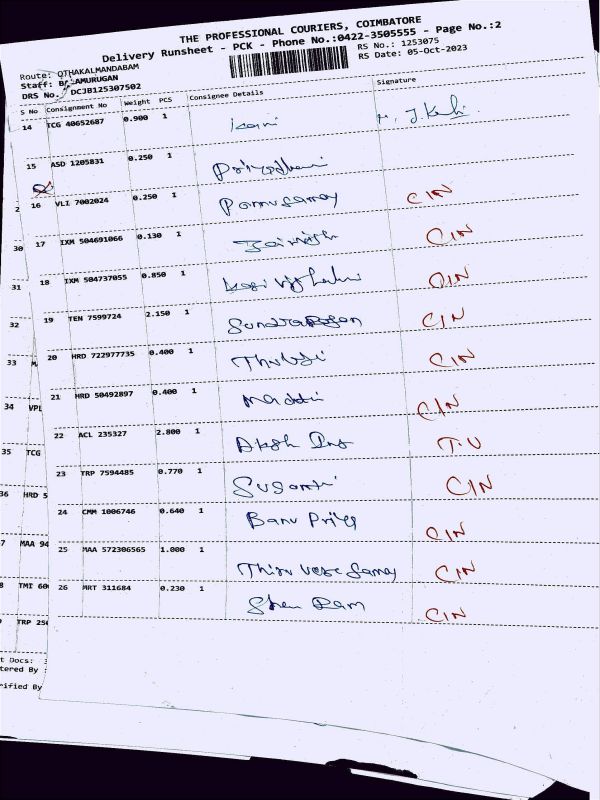 THE PROFESSIONAL COURIERS, COIMBATORE
Delivery Runsheet - PCK - Phone No.:0422-3505555 - Page No.:2
Route: OTHAKALMANDABAM
RS No.: 1253075
Staff: BALAMURUGAN
RS Date: 05-Oct-2023
DRS No. DCJB125307502
S No Consignment No Weight PCS Consignee Details Signature
14 TCG 40652687 0.900 1
15 ASD 1205831 0.250 1
2 16 VLI 7002024 0.250 1 Ponnusamy CIN
30 17 IXM 504691066 0.130 1 CIN
31 18 IXM 504737055 0.850 1 CIN
32 19 TEN 7599724 2.150 1 CIN
33 20 HRD 722977735 0.400 1 Thulasi CIN
34 VPL 21 HRD 50492897 0.400 1 CIN
35 TCG 22 ACL 235327 2.800 1 T.U
36 HRD 5 23 TRP 7594485 0.770 1 CIN
24 CMM 1006746 0.640 1 Banu Priya CIN
7 MAA 94 25 MAA 572306565 1.000 1 CIN
TMI 60 26 MRT 311684 0.230 1 CIN
TRP 250
t Docs:
tered By :
rified By